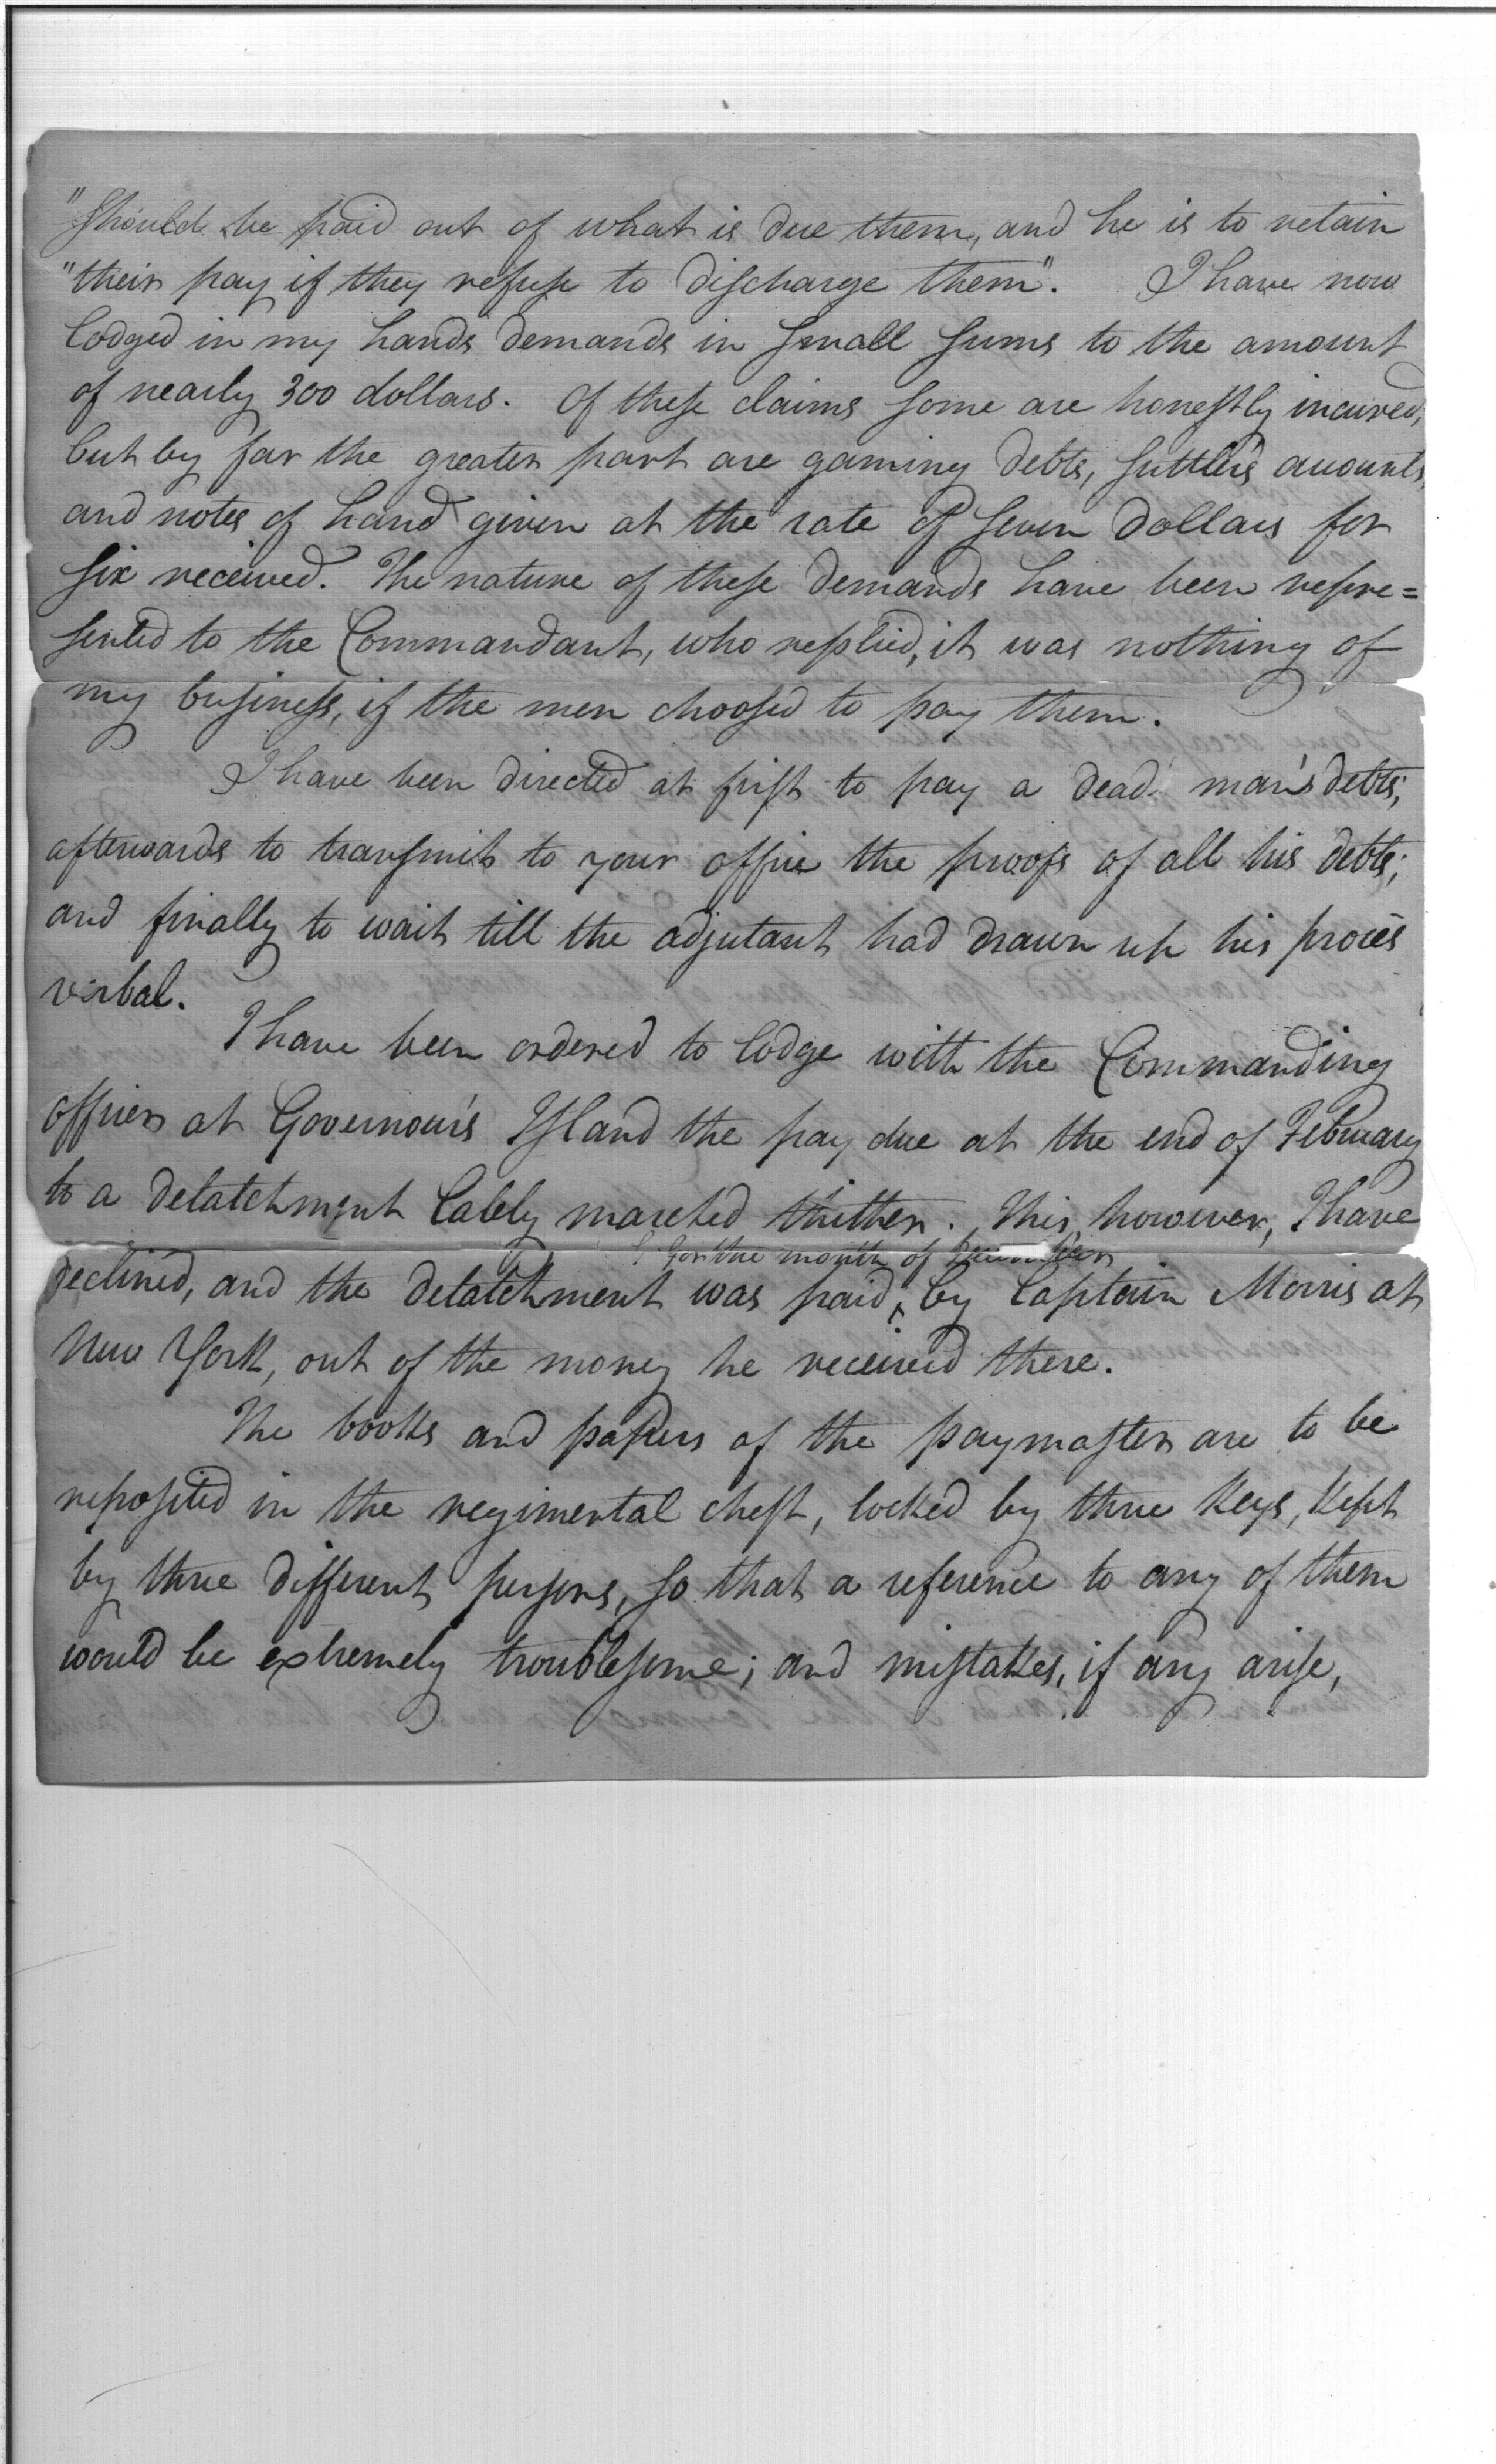 "should be paid out of what is due them, and he is to retain
"their pay if they refuse to discharge them". I have now
lodged in my hands demands in small sums to the amount
of nearly 300 dollars. Of these claims some are honestly incured,
but by far the greater part are gaming debts, suttler's accounts,
and notes of hand given at the rate of seven dollars for
six received. The nature of these demands have been repre=
sented to the Commandant, who replied, it was nothing of
my business, if the men choosed to pay them.
I have been directed at first to pay a dead man's debts;
afterwards to transmit to your office the proofs of all his debts;
and finally to wait till the adjutant had drawn up his procès
verbal.
I have been ordered to lodge with the Commanding
officer at Governour's Island the pay due at the end of February
to a detatchment lately marched thither. This, however, I have
for the month of December
declined, and the detatchment was paid, ^ by Captain Morris at
New York, out of the money he received there.
The books and papers of the paymaster are to be
reposited in the regimental chest, locked by three keys, kept
by three different persons, so that a reference to any of them
would be extremely troublesome; and mistakes, if any arise,